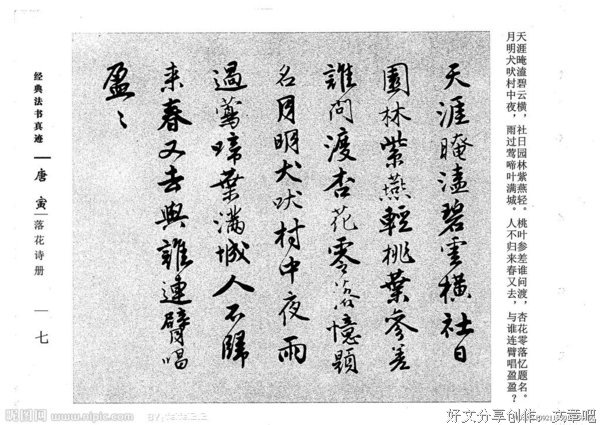 天涯晻溘碧云横，社日园林紫燕轻。桃叶参差谁问渡，杏花零落忆题名。
月明犬吠村中夜，雨过莺啼叶满城。人不归来春又去，与谁连臂唱盈盈？
天涯晻溘碧雲橫社日
園林紫燕輕桃葉參差
誰問渡杏花零落憶題
名月明犬吠村中夜雨
過鶯啼葉滿城人不歸
來春又去與誰連臂唱
盈〻
经典法书真迹
唐寅
落花诗册
七
昵图网 www.nipic.com
好文分享创作 文章吧